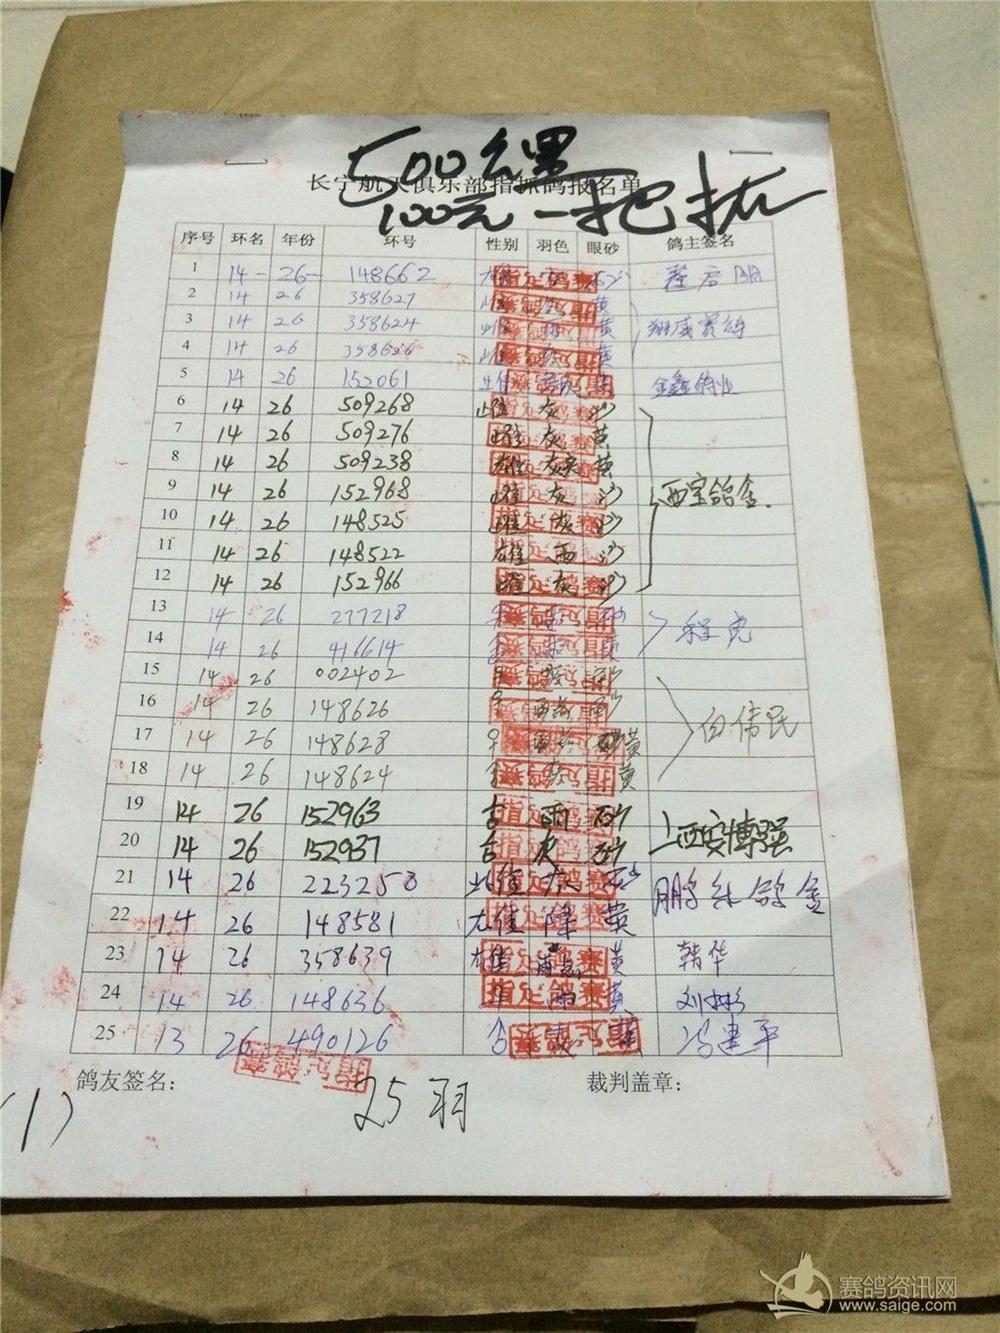 500公里
长宁航天俱乐部指抓鸽报名单
100元 一把抓
序号 环名 年份 环号 性别 羽色 眼砂 鸽主签名
1 14-26-148662 雄 灰 砂
2 14 26 358627 雌 黄
3 14 26 358624 雌 黄 翔威赛鸽
4 14 26 358626 雌 黄
5 14 26 152061 雌 金鑫鸽业
6 14 26 509268 雌 灰 沙
7 14 26 509276 雌 灰 黄
8 14 26 509238 雄 黄
9 14 26 152968 雌 灰 沙 西宝鸽舍
10 14 26 148525 雌 灰 沙
11 14 26 148522 雄 雨 沙
12 14 26 152966 雌 灰 沙
13 14 26 277218 砂
14 14 26 416614 黄 程虎
15 14 26 002402 砂
16 14 26 148626 砂
17 14 26 148628 黄 白伟民
18 14 26 148624 黄
19 14 26 152963 雨 砂
20 14 26 152937 灰 砂 西安博强
21 14 26 223258 雌 灰 砂
22 14 26 148581 雄 绛 黄
23 14 26 358639 雄 雨点 黄 韩华
24 14 26 148636 雨 黄 刘彬
25 13 26 490126 黄 冯建平
指定鸽赛
鸽友签名： 裁判盖章：
(1) 25羽
赛鸽资讯网
www.saige.com